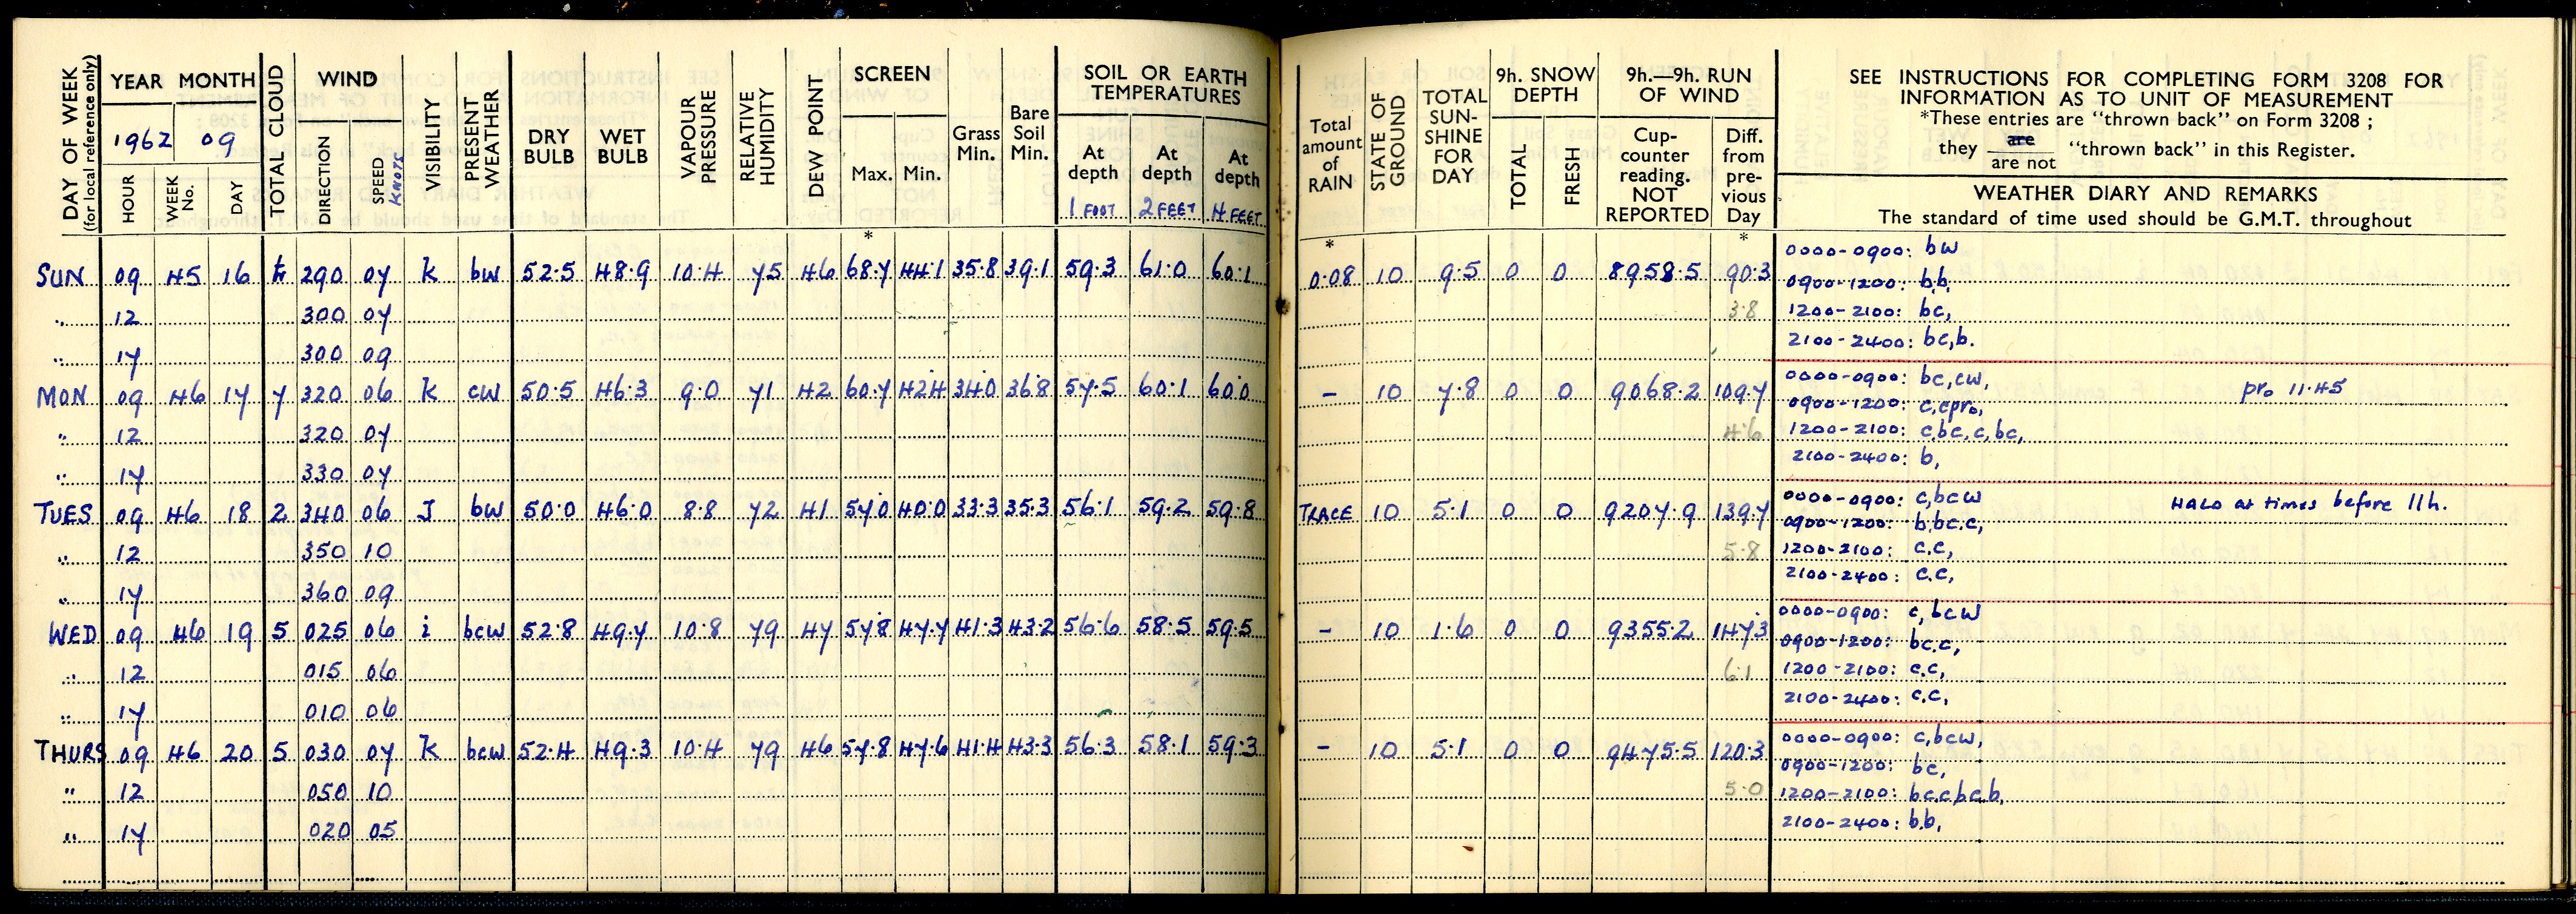 DAY OF WEEK
(for local reference only)
YEAR MONTH
1962 09
HOUR WEEK No. DAY
TOTAL CLOUD
WIND
DIRECTION SPEED KNOTS
VISIBILITY
PRESENT WEATHER
DRY BULB
WET BULB
VAPOUR PRESSURE
RELATIVE HUMIDITY
DEW POINT
SCREEN
Max. Min.
*
Grass Min.
Bare Soil Min.
SOIL OR EARTH
TEMPERATURES
At depth At depth At depth
1 FOOT 2 FEET 4 FEET
Total amount of RAIN
*
STATE OF GROUND
TOTAL SUN-SHINE FOR DAY
9h. SNOW DEPTH
TOTAL FRESH
9h.—9h. RUN OF WIND
Cup-counter reading. NOT REPORTED
Diff. from pre-vious Day
*
SEE INSTRUCTIONS FOR COMPLETING FORM 3208 FOR
INFORMATION AS TO UNIT OF MEASUREMENT
*These entries are "thrown back" on Form 3208 ;
they are / are not "thrown back" in this Register.
WEATHER DIARY AND REMARKS
The standard of time used should be G.M.T. throughout
SUN 09 45 16 290 07 k bw 52.5 48.9 10.4 75 46 68.7 44.1 35.8 39.1 59.3 61.0 60.1 0.08 10 9.5 0 0 8958.5 90.3
0000-0900: bw
0900-1200: b,b,
" 12 300 07 3.8
1200-2100: bc,
" 17 300 09
2100-2400: bc,b.
MON 09 46 17 7 320 06 k cw 50.5 46.3 9.0 71 42 60.7 42.4 34.0 36.8 57.5 60.1 60.0 - 10 7.8 0 0 9068.2 109.7
0000-0900: bc,cw, pro 11.45
0900-1200: c,cpro,
" 12 320 07 4.6
1200-2100: c,bc,c,bc,
" 17 330 07
2100-2400: b,
TUES 09 46 18 2 340 06 J bw 50.0 46.0 8.8 72 41 57.0 40.0 33.3 35.3 56.1 59.2 59.8 TRACE 10 5.1 0 0 9207.9 139.7
0000-0900: c,bcw HALO at times before 11h.
0900-1200: b,bc,c,
" 12 350 10 5.8
1200-2100: c.c,
" 17 360 09
2100-2400: c.c,
WED 09 46 19 5 025 06 i bcw 52.8 49.7 10.8 79 47 57.8 47.7 41.3 43.2 56.6 58.5 59.5 - 10 1.6 0 0 9355.2 147.3
0000-0900: c,bcw
0900-1200: bc.c,
" 12 015 06 6.1
1200-2100: c.c,
" 17 010 06
2100-2400: c.c,
THURS 09 46 20 5 030 07 k bcw 52.4 49.3 10.4 79 46 57.8 47.6 41.4 43.3 56.3 58.1 59.3 - 10 5.1 0 0 9475.5 120.3
0000-0900: c,bcw,
0900-1200: bc,
" 12 050 10 5.0
1200-2100: bc.c,bc.b,
" 17 020 05
2100-2400: b.b,